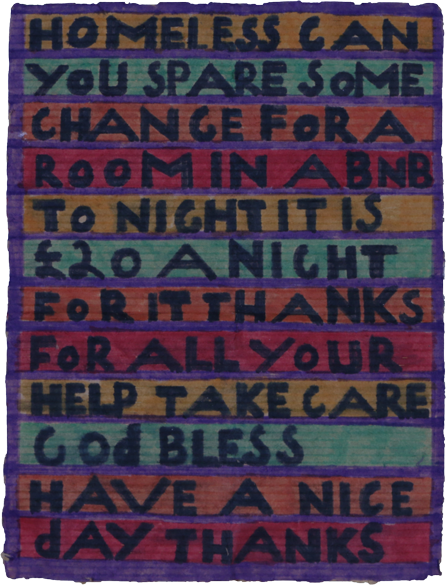 HOMELESS CAN
YOU SPARE SOME
CHANGE FOR A
ROOM IN A BNB
TO NIGHT IT IS
£20 A NIGHT
FOR IT THANKS
FOR ALL YOUR
HELP TAKE CARE
GOd BLESS
HAVE A NICE
dAY THANKS